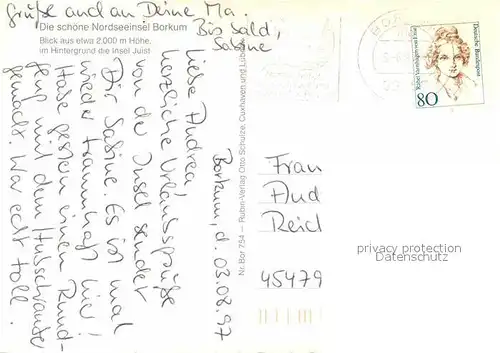 Grüße auch an Deine Ma.
Bis bald,
Sabine
Die schöne Nordseeinsel Borkum
Blick aus etwa 2.000 m Höhe,
im Hintergrund die Insel Juist
Borkum, d. 03.08.97
Liebe Andrea
herzliche Urlaubsgrüße
von der Insel sendet
Dir Sabine. Es ist mal
wieder traumhaft hier!
Habe gestern einen Rund-
flug mit dem Hubschrauber
gemacht. War echt toll.
Nr. Bor 754 — Rubin-Verlag Otto Schulze, Cuxhaven und
Frau
And
Reid
45479
Deutsche Bundespost
Rahel Varnhagen von Ense
80
privacy protection
Datenschutz